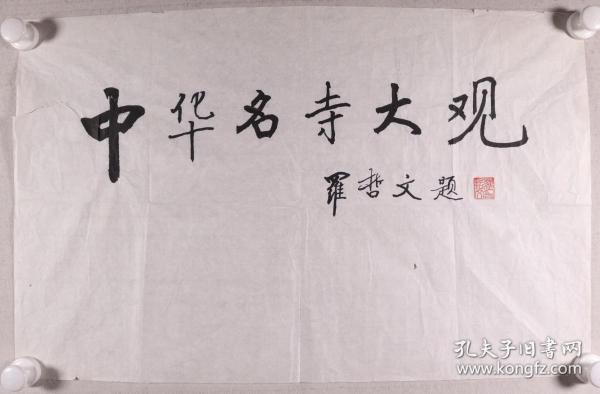 中华名寺大观
羅哲文题
孔夫子旧书网
www.kongfz.com